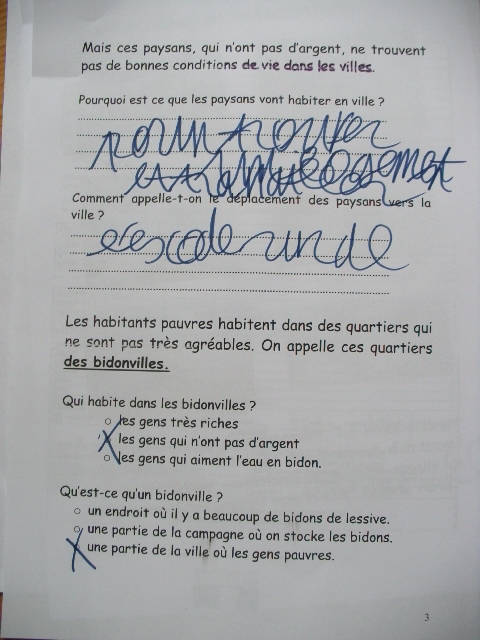 Mais ces paysans, qui n'ont pas d'argent, ne trouvent
pas de bonnes conditions de vie dans les villes.
Pourquoi est ce que les paysans vont habiter en ville ?
pour trouver
Comment appelle-t-on le déplacement des paysans vers la
ville ?
Les habitants pauvres habitent dans des quartiers qui
ne sont pas très agréables. On appelle ces quartiers
des bidonvilles.
Qui habite dans les bidonvilles ?
les gens très riches
les gens qui n'ont pas d'argent
les gens qui aiment l'eau en bidon.
Qu'est-ce qu'un bidonville ?
un endroit où il y a beaucoup de bidons de lessive.
une partie de la campagne où on stocke les bidons.
une partie de la ville où les gens pauvres.
3